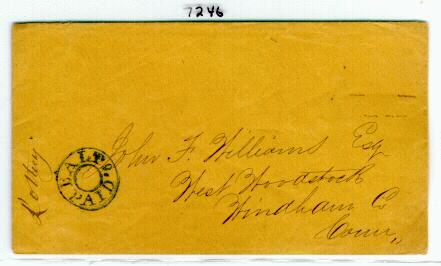 7246
BALTO.
PAID
John F. Williams Esq
West Woodstock
Windham Co
Conn,,